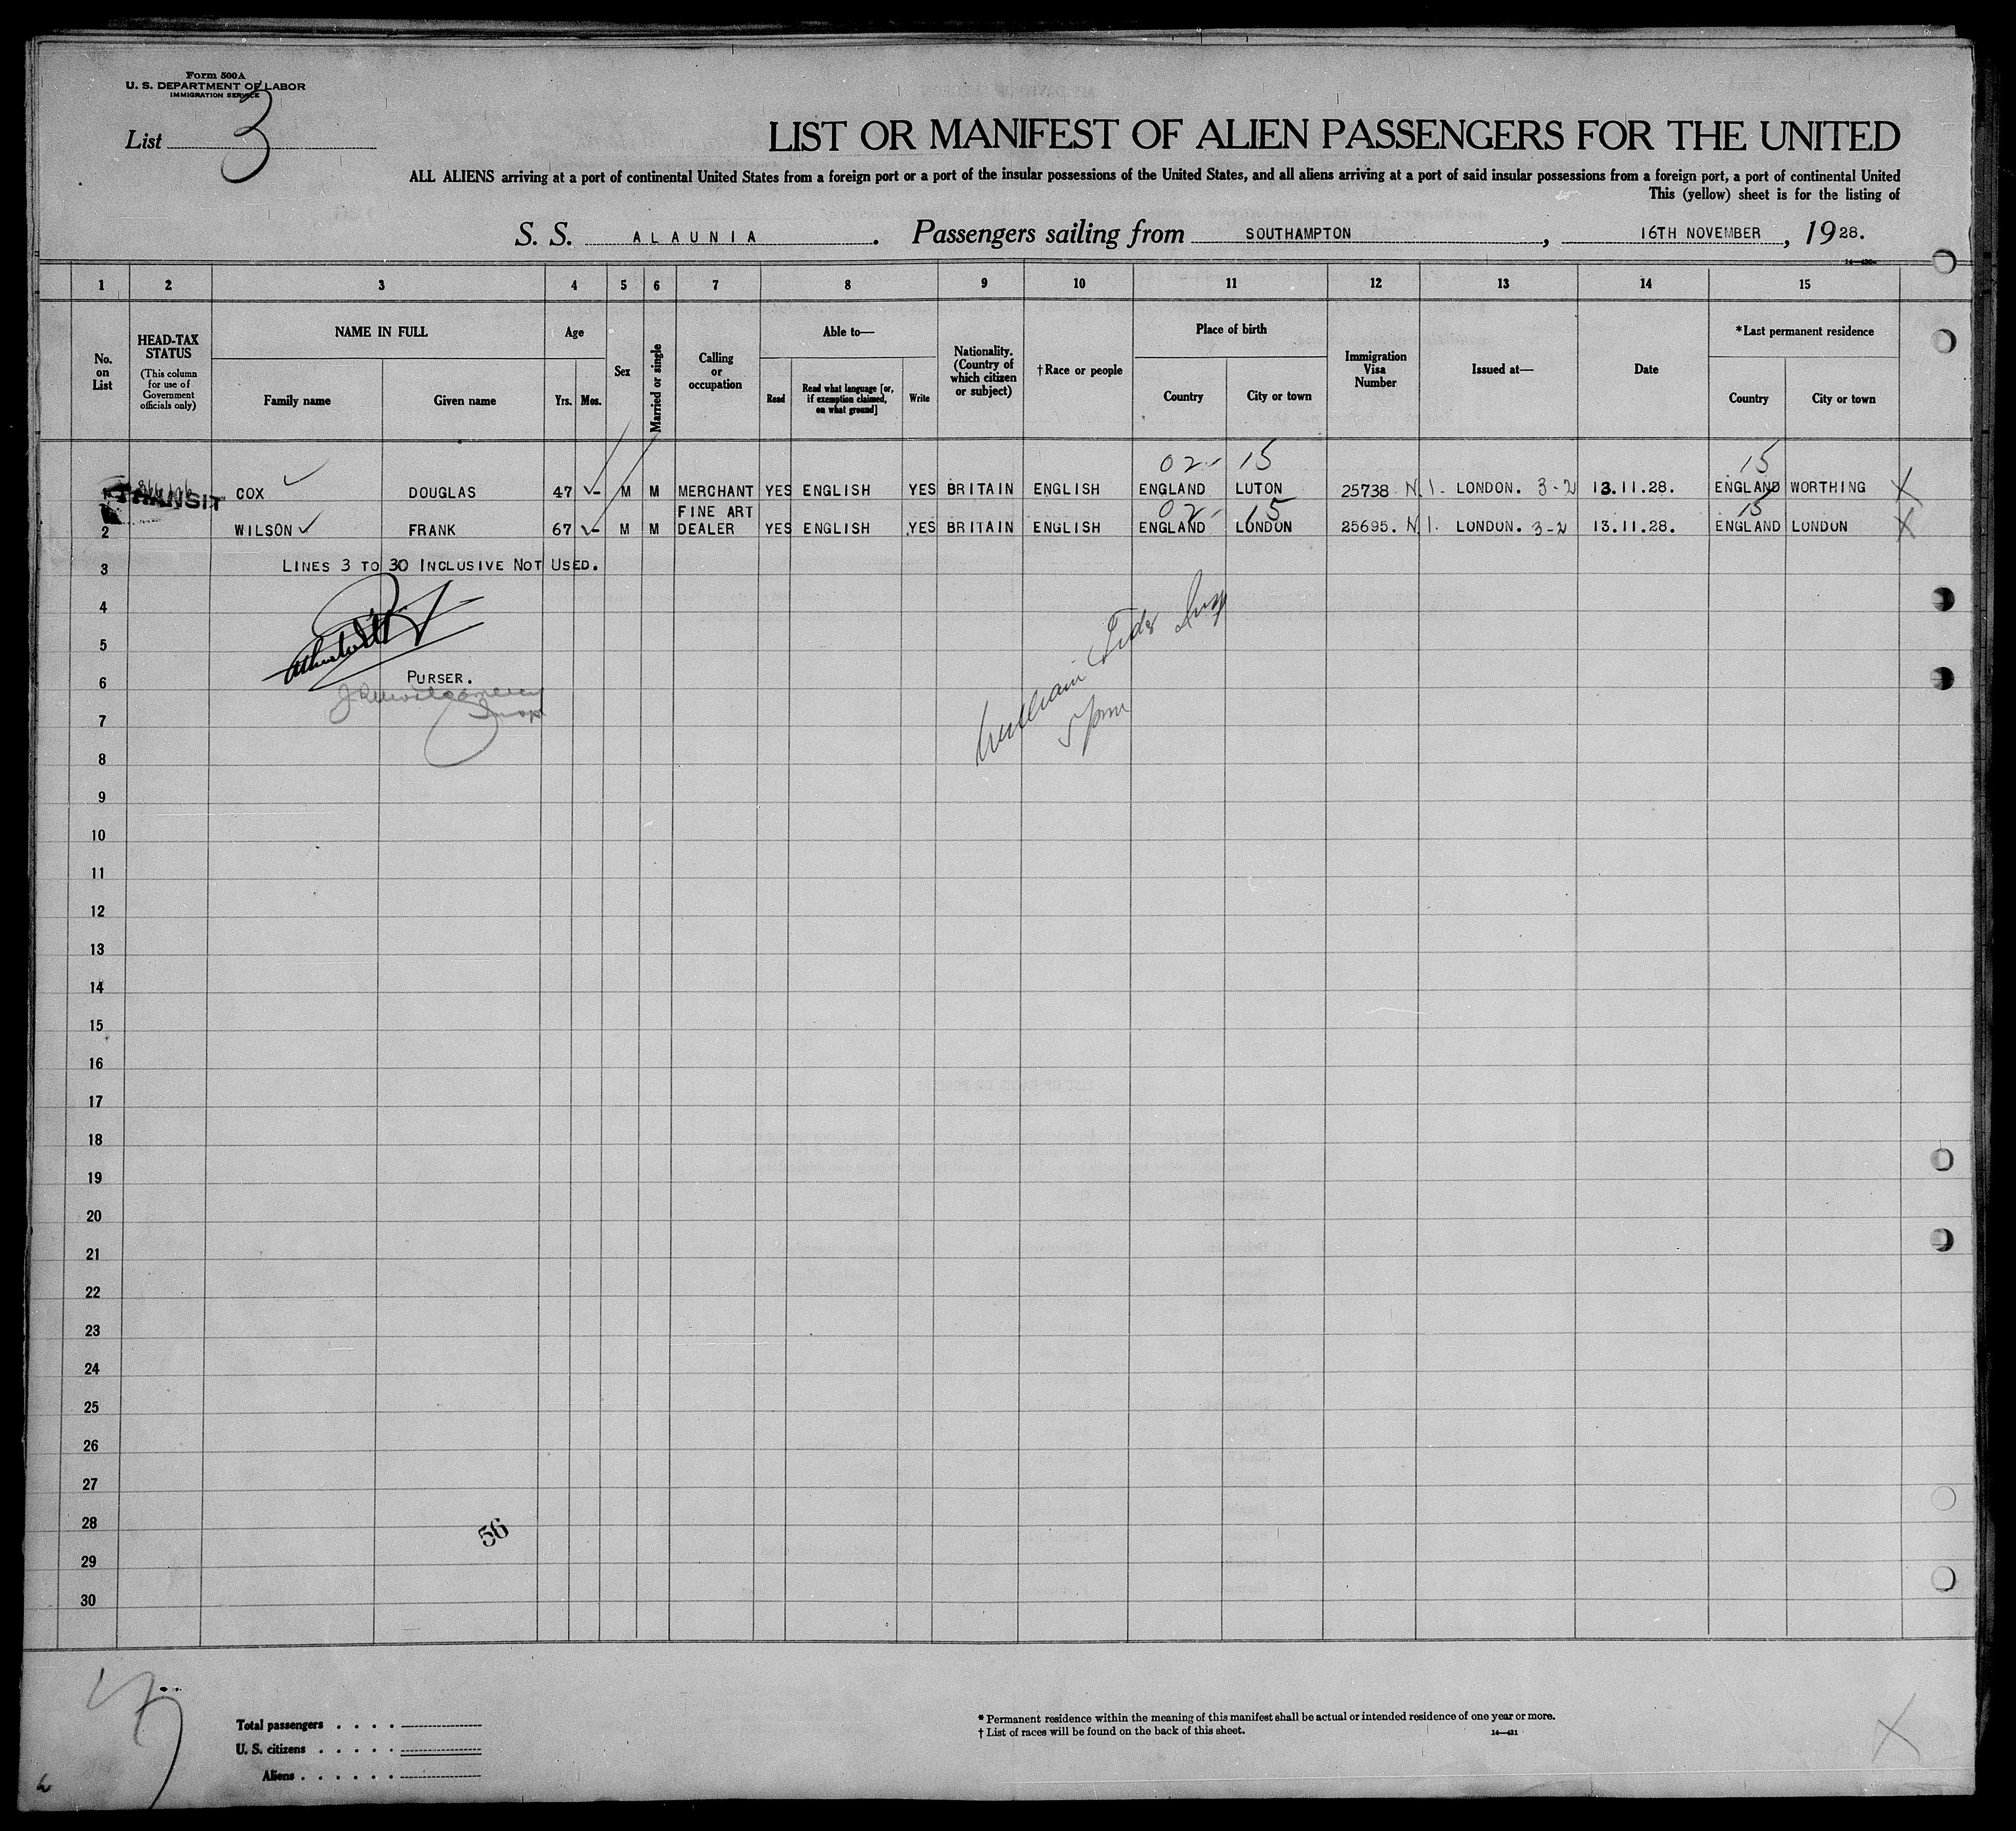 Form 500A
U. S. DEPARTMENT OF LABOR
IMMIGRATION SERVICE
List 3
LIST OR MANIFEST OF ALIEN PASSENGERS FOR THE UNITED
ALL ALIENS arriving at a port of continental United States from a foreign port or a port of the insular possessions of the United States, and all aliens arriving at a port of said insular possessions from a foreign port, a port of continental United
This (yellow) sheet is for the listing of
S. S. ALAUNIA. Passengers sailing from SOUTHAMPTON, 16TH NOVEMBER, 1928.
1 2 3 4 5 6 7 8 9 10 11 12 13 14 15
No. on List
HEAD-TAX STATUS
(This column for use of Government officials only)
NAME IN FULL
Family name Given name
Age
Yrs. Mos.
Sex
Married or single
Calling or occupation
Able to—
Read
Read what language [or, if exemption claimed, on what ground]
Write
Nationality. (Country of which citizen or subject)
†Race or people
Place of birth
Country City or town
Immigration Visa Number
Issued at—
Date
*Last permanent residence
Country City or town
02- 15 15
TRANSIT COX DOUGLAS 47 - M M MERCHANT YES ENGLISH YES BRITAIN ENGLISH ENGLAND LUTON 25738 N.1. LONDON. 3-2 13.11.28. ENGLAND WORTHING X
FINE ART 02- 15 15
2 WILSON FRANK 67 - M M DEALER YES ENGLISH YES BRITAIN ENGLISH ENGLAND LONDON 25695. N.1. LONDON. 3-2 13.11.28. ENGLAND LONDON X
3 LINES 3 TO 30 INCLUSIVE NOT USED.
4
5
6 PURSER.
7
8
9
10
11
12
13
14
15
16
17
18
19
20
21
22
23
24
25
26
27
28
56
29
30
Total passengers . . . .
U. S. citizens . . . . .
Aliens . . . . . .
* Permanent residence within the meaning of this manifest shall be actual or intended residence of one year or more.
† List of races will be found on the back of this sheet. 14—431
X